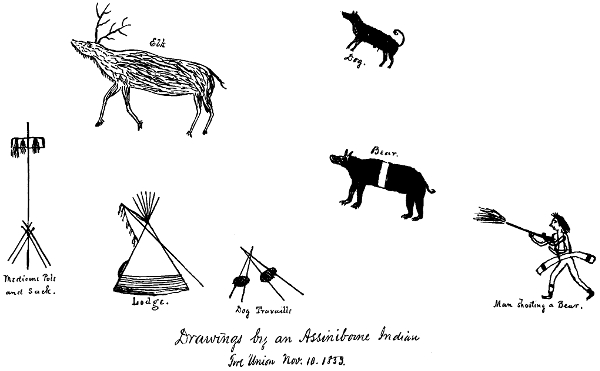 Elk
Dog.
Bear.
Medicine Pole
and Sack.
Lodge.
Dog Travaille
Man Shooting a Bear.
Drawings by an Assiniboine Indian
Fort Union Nov. 10. 1853.